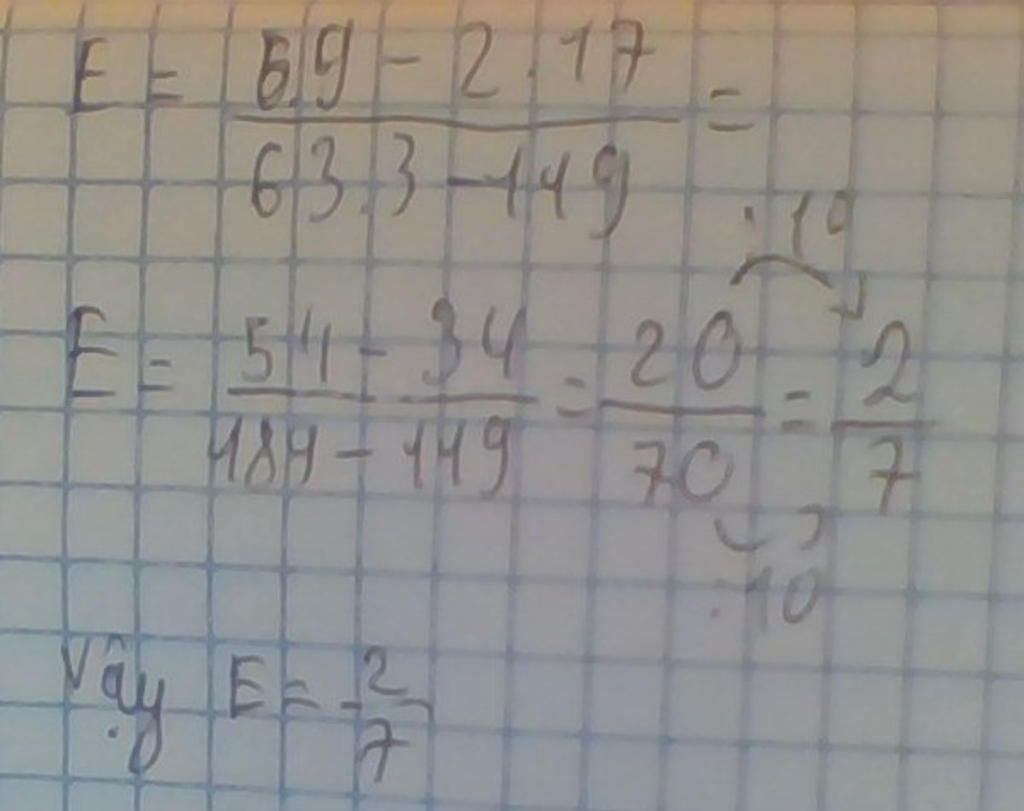 E = \frac{6.9 - 2.17}{63.3 - 119} =
:10
E = \frac{54 - 34}{189 - 119} = \frac{20}{70} = \frac{2}{7}
:10
Vậy E = \frac{2}{7}